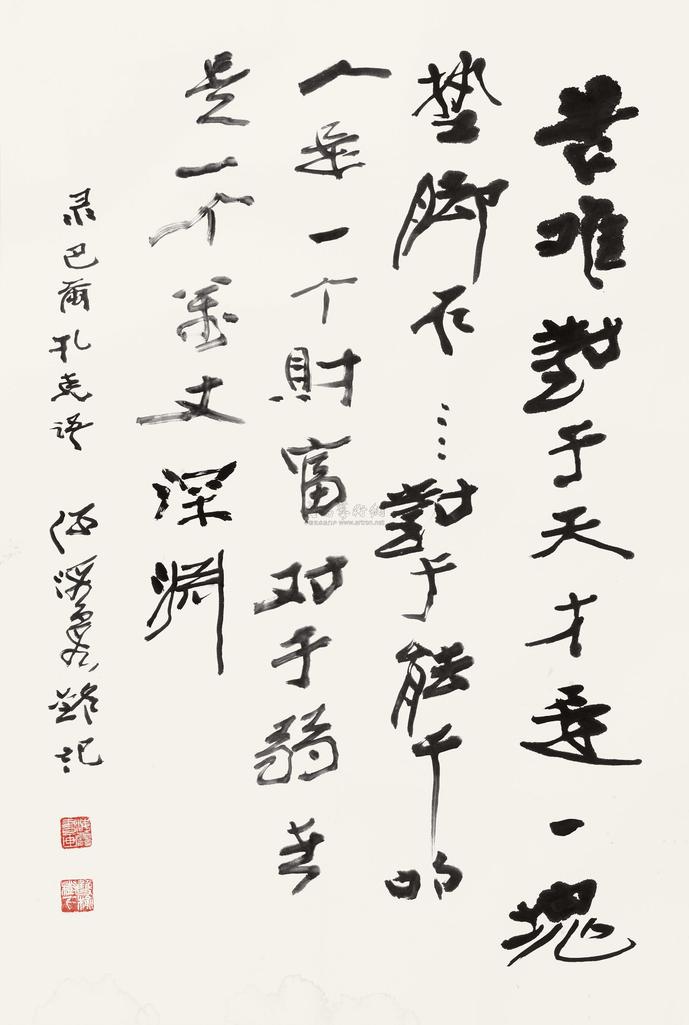 苦难對于天才是一塊
垫脚石……對于能干的
人是一个財富对于弱者
是一个萬丈深渊
录巴爾扎克语 记
www.artron.net